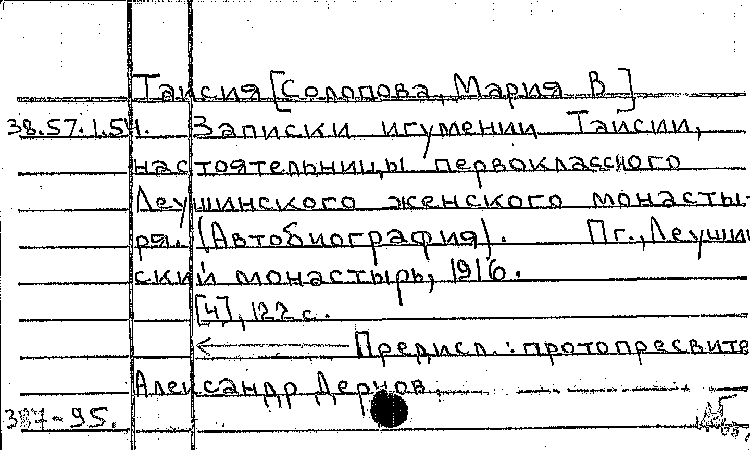 Таисия [Солопова, Мария В]
38.57.1.54. Записки игумении Таисии,
настоятельницы первоклассного
Леушинского женского монасты-
ря. (Автобиография). Пг., Леушин
ский монастырь, 1916.
[4], 122 с.
Предисл.: протопресвите
Александр Дернов.
387-95.